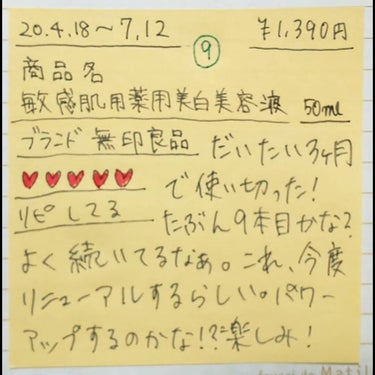 20.4.18～7.12
⑨
¥1,390円
商品名
敏感肌用薬用美白美容液 50ml
ブランド 無印良品
だいたい3ヶ月
♥♥♥♥♥
で使い切った!
リピしてる
たぶん9本目かな?
よく続いてるなぁ。これ、今度
リニューアルするらしい。パワー
アップするのかな!?楽しみ!